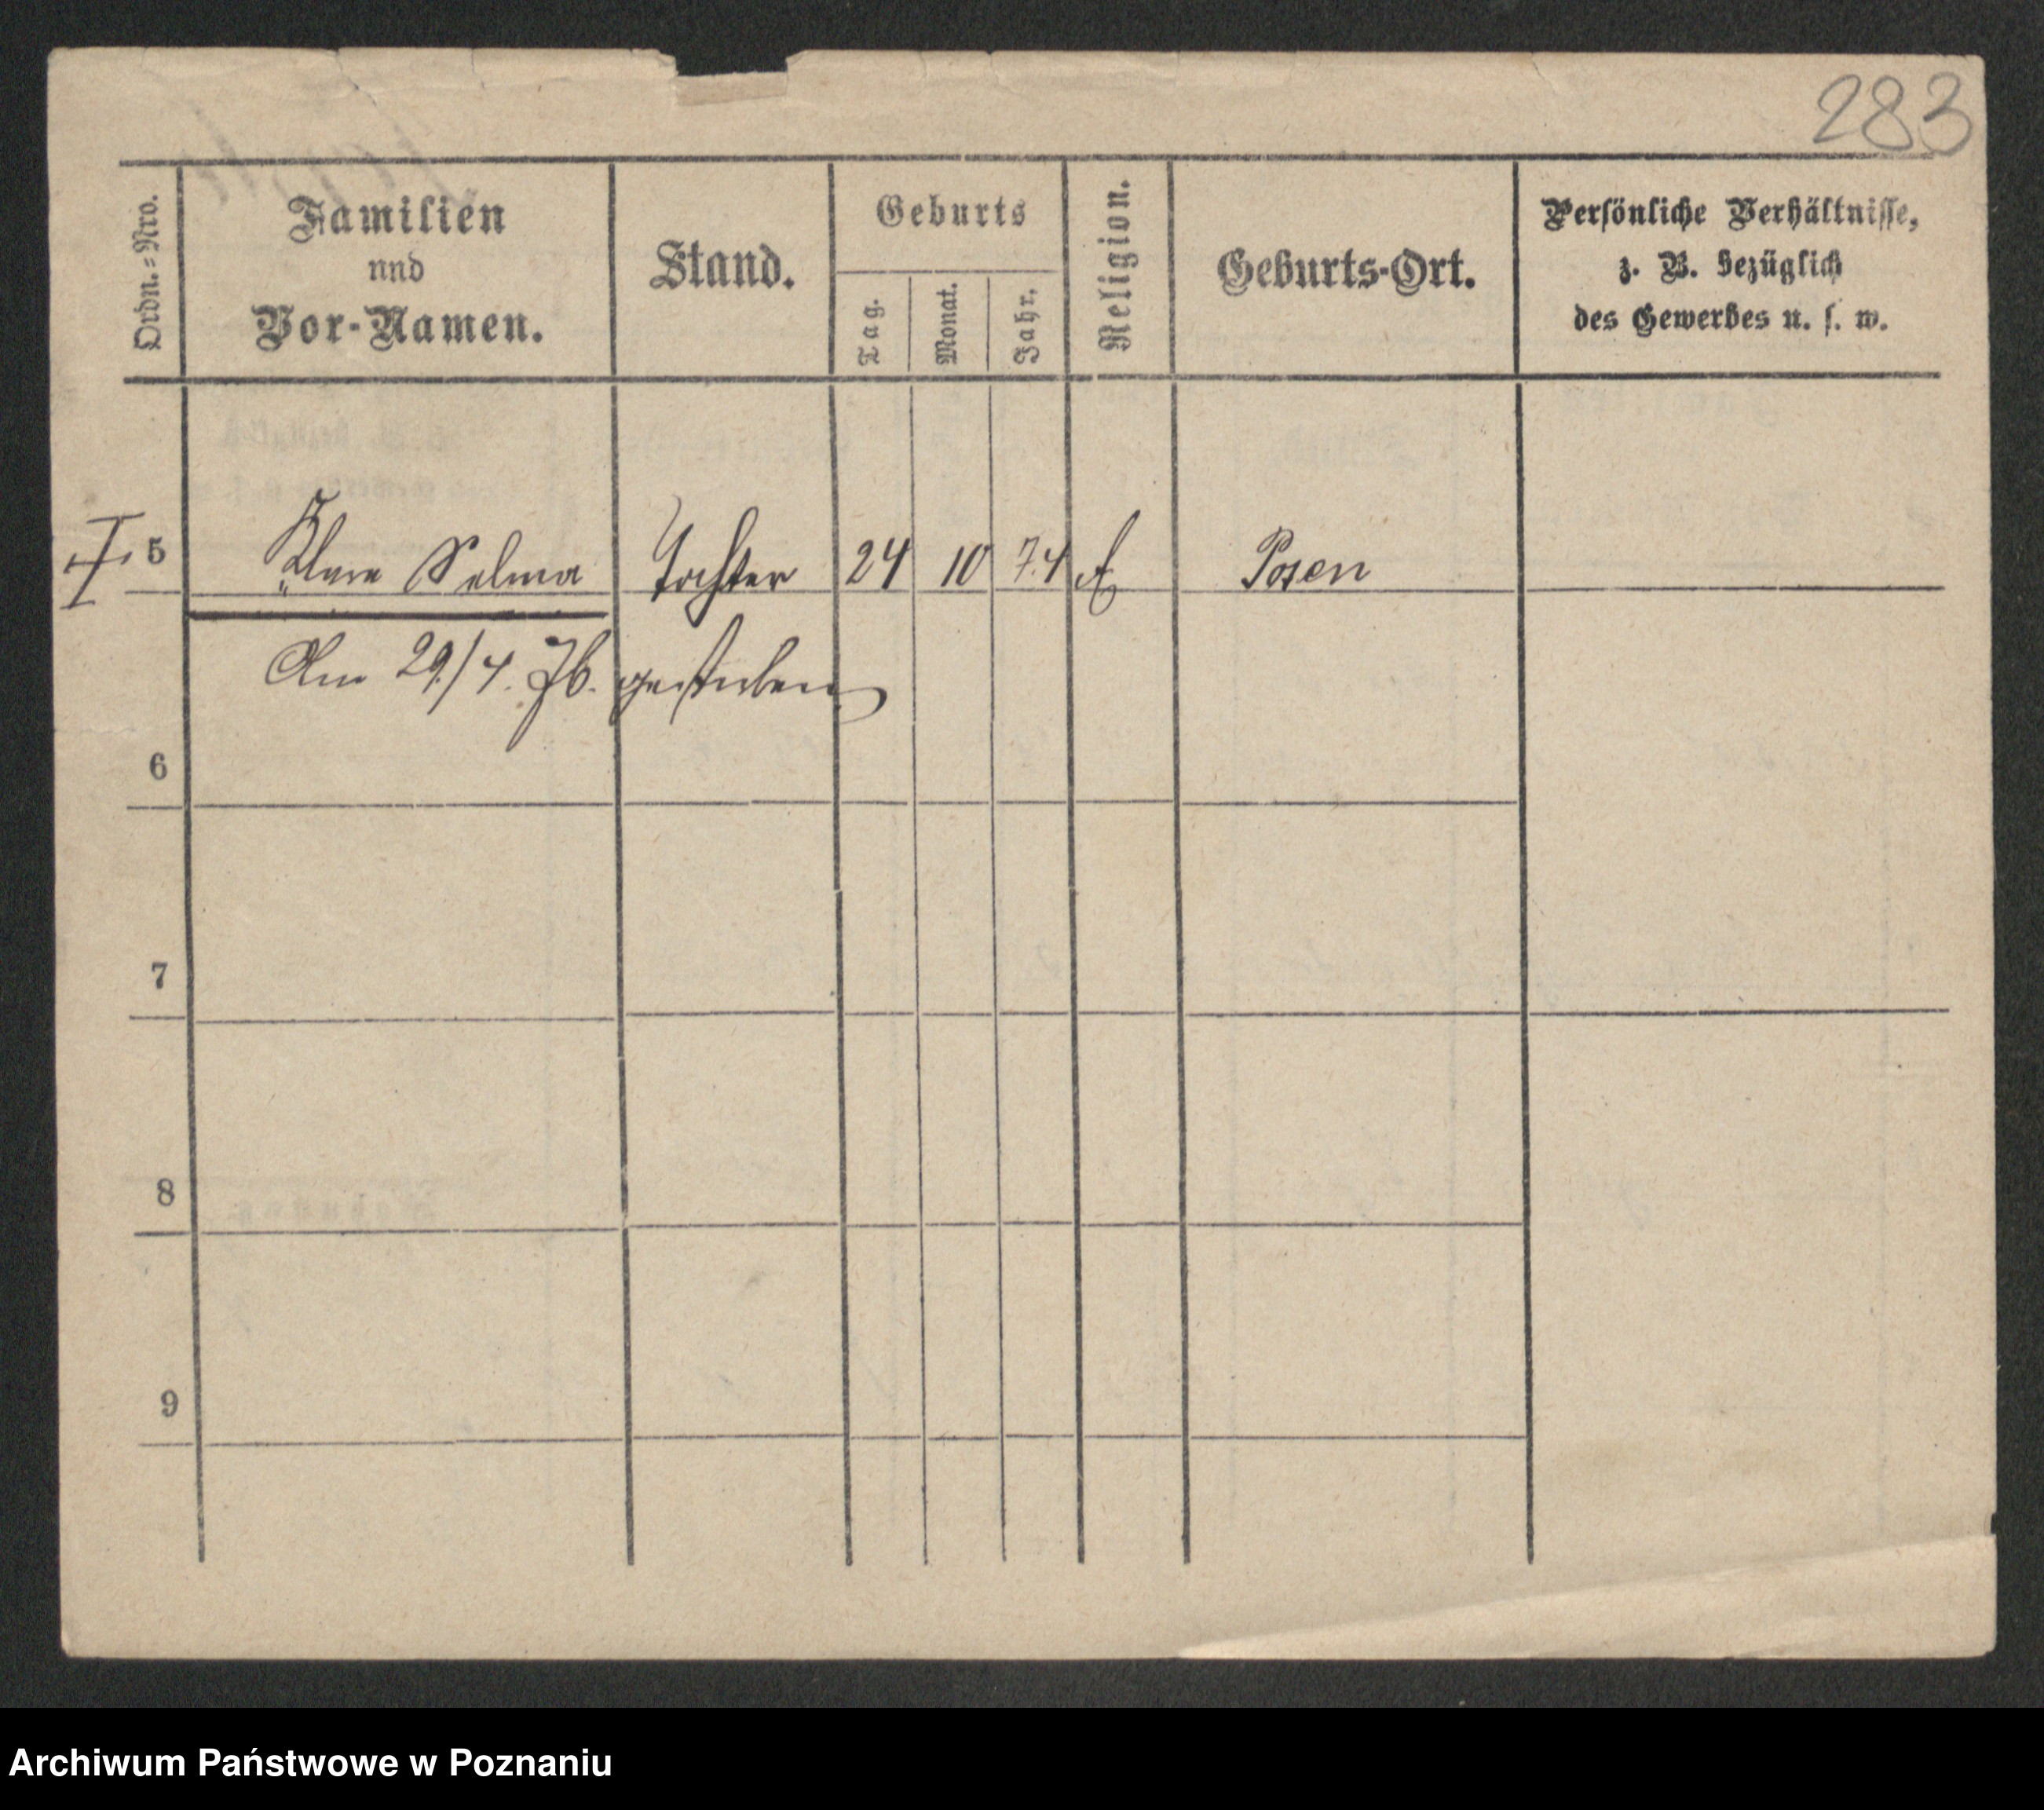 283
Ordn.-Nro.
Familien
und
Vor-Namen.
Stand.
Geburts
Tag.
Monat.
Jahr.
Religion.
Geburts-Ort.
Persönliche Verhältnisse,
z. B. bezüglich
des Gewerbes u. s. w.
5 Selma Tochter 24 10 74 Posen
Am 29/4. 76. gestorben
6
7
8
9
Archiwum Państwowe w Poznaniu